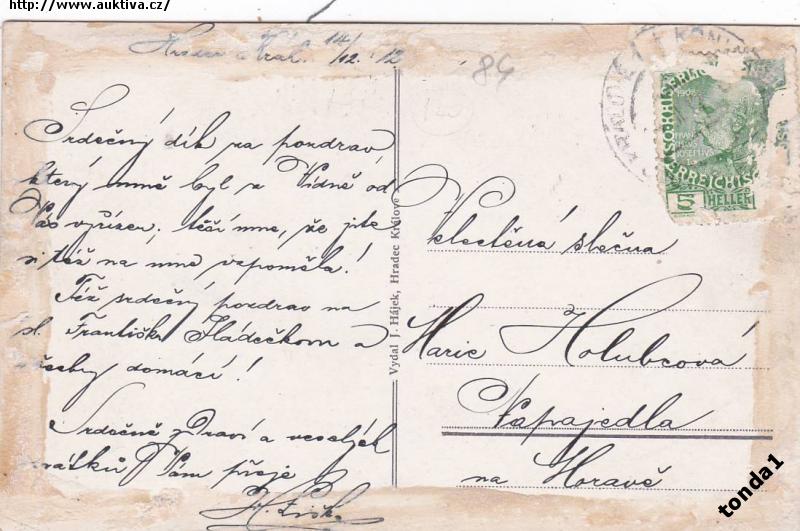 http://www.auktiva.cz/
Hradec Král. 14/12. 12
84
Srdečný dík za pozdrav
který mně byl z Vídně od
Vás vyřízen; těší mne, že jste
si též na mne vzpoměla!
Též srdečný pozdrav na
sl. Františku Sládečkom a
všecky domácí!
Srdečně zdraví a veselých
svátků Vám přeje
Vydal J. Hájek, Hradec Králové
5 HELLER
Velectěná slečna
Marie Holubcová
Napajedla
na Moravě
tonda1